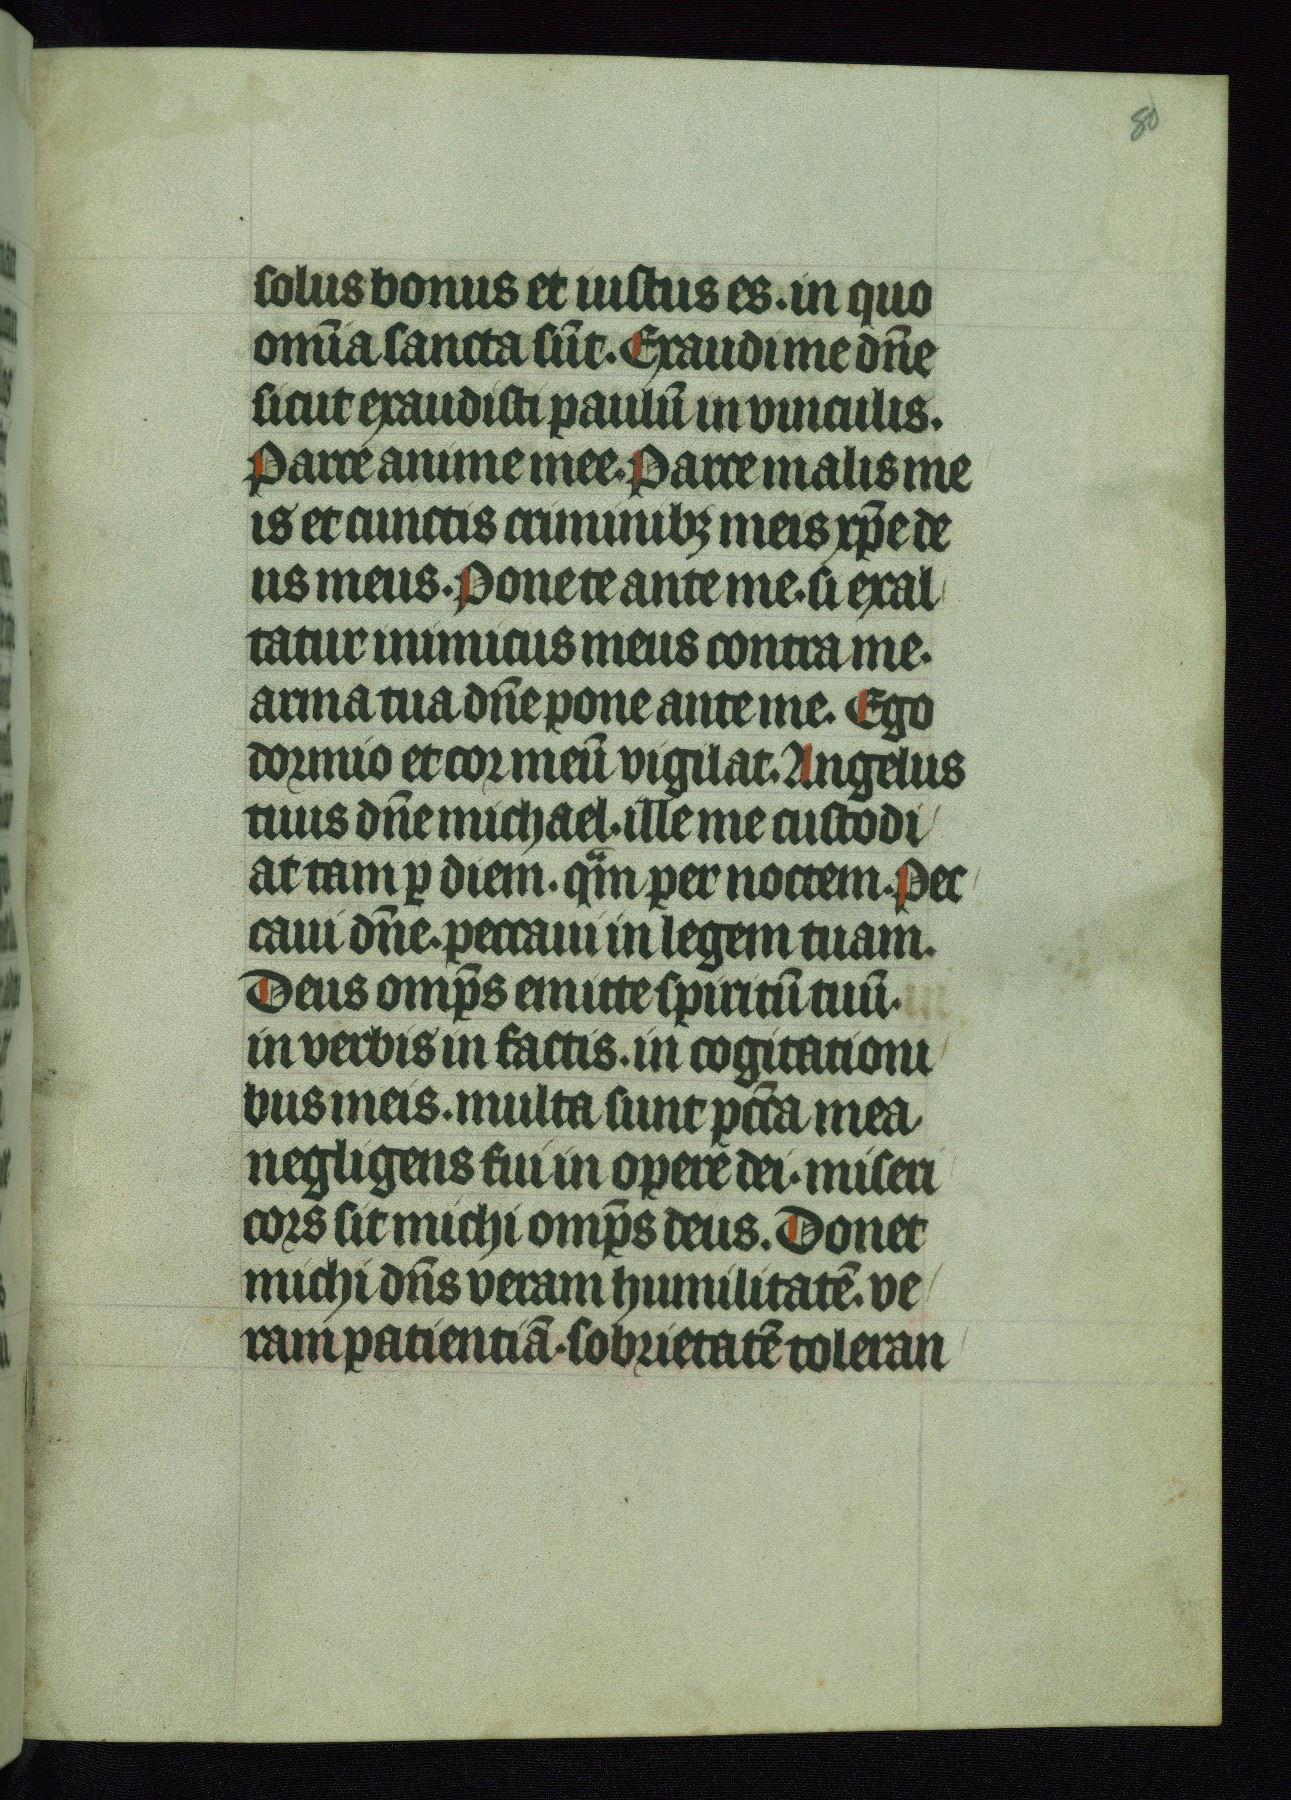 80
solus bonus et iustus es. in quo
om̄ia sancta sūt. Exaudi me dn̄e
sicut exaudisti paulū in vinculis.
Parce anime mee. Parce malis me
is et cunctis criminibꝫ meis xp̄e de
us meus. Pone te ante me. si exal
tatur inimicus meus contra me.
arma tua dn̄e pone ante me. Ego
dormio et cor meū vigilat. Angelus
tuus dn̄e michael. ille me custodi
at tam ꝑ diem. qᵃm per noctem. Pec
caui dn̄e. peccaui in legem tuam.
Deus omp̄s emitte spiritū tuū.
in verbis in factis. in cogitationi
bus meis. multa sunt pctā mea
negligens fui in opere dei. miseri
cors sit michi omp̄s deus. Donet
michi dn̄s veram humilitatē. ve
ram patientiā. sobrietatē toleran